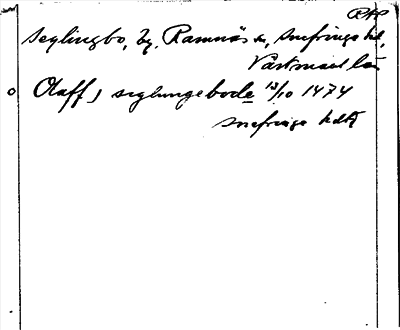 RAP
Seglingbo, by, Ramnäs sn, Snefringe hd,
Västmanl län
Olaff j seglungebode 13/10 1474
snefringe hdt